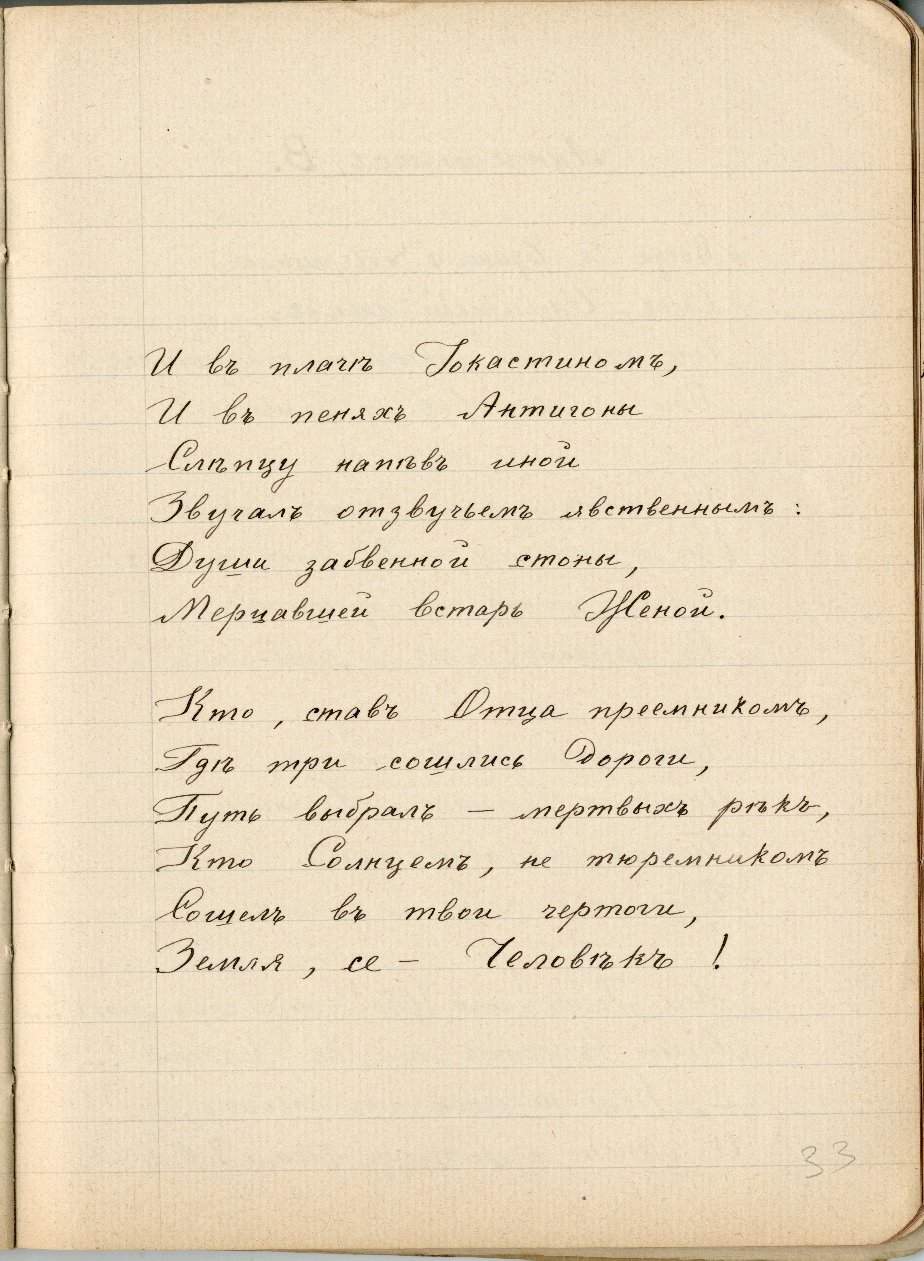 И въ плачѣ Іокастиномъ,
И въ пеняхъ Антигоны
Слѣпцу напѣвъ иной
Звучалъ отзвучьемъ явственнымъ:
Души забвенной стоны,
Мерцавшей встарь Женой.
Кто, ставъ Отца преемникомъ,
Гдѣ три сошлись дороги,
Путь выбралъ — мертвыхъ рѣкъ,
Кто Солнцемъ, не тюремникомъ
Сошелъ въ твои чертоги,
Земля, се — Человѣкъ!
33